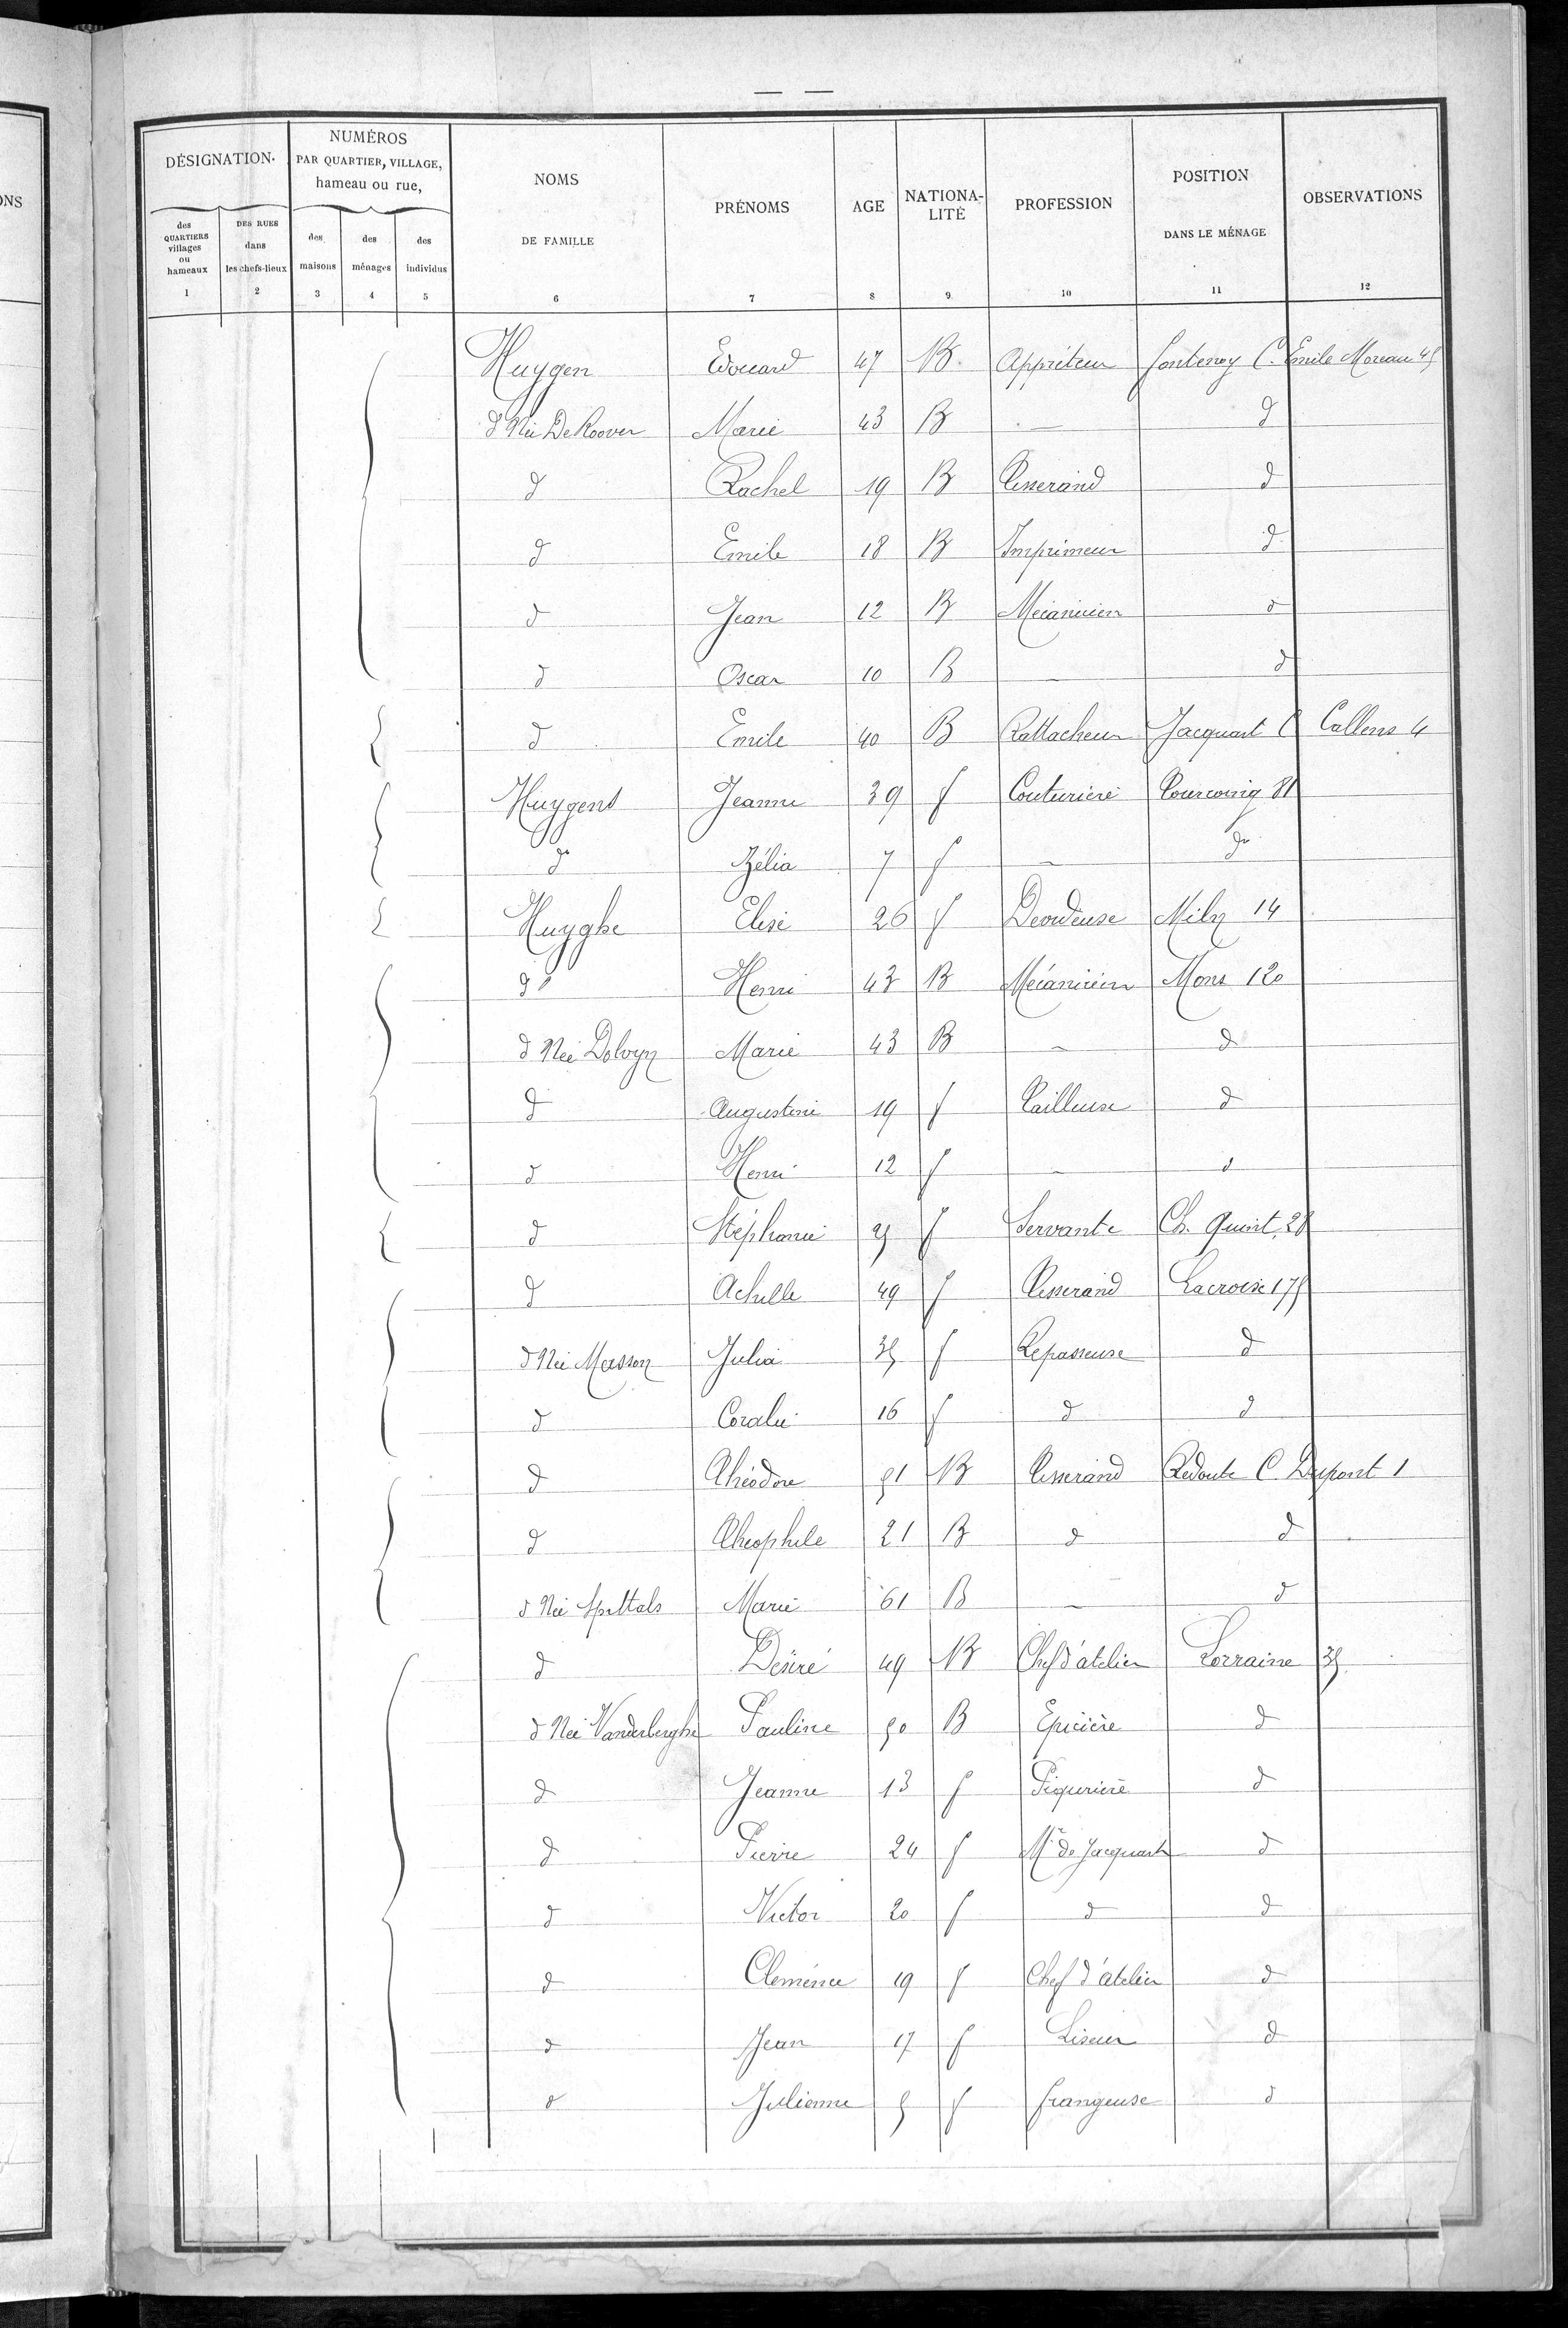 ONS
— —
DÉSIGNATION·
NUMÉROS
PAR QUARTIER, VILLAGE,
hameau ou rue,
NOMS
DE FAMILLE
PRÉNOMS
AGE
NATIONA-
LITÉ
PROFESSION
POSITION
DANS LE MÉNAGE
OBSERVATIONS
des QUARTIERS villages ou hameaux
DES RUES dans les chefs-lieux
des maisons
des ménages
des individus
1 2 3 4 5 6 7 8 9 10 11 12
Huygen Edouard 47 B. Appréteur fontenoy C. Emile Moreau 45
d Née De Roover Marie 43 B — d
d Rachel 19 B Tisserand d
d Emile 18 B Imprimeur d
d Jean 12 B Mécanicien d
d Oscar 10 B — d
d Emile 40 B Rattacheur Jacquart C Callens 4
Huygens Jeanne 39 f Couturière Tourcoing 81
d° Zélia 7 f — d°
Huyghe Elise 26 f Devideuse Mily 14
d° Henri 43 B Mécanicien Mons 120
d Née Dolvyn Marie 43 B — d
d Augustine 19 f Tailleuse d
d Henri 12 f — d
d Stéphanie 25 f Servante Ch. Quint, 28
d Achille 49 f Tisserand Lacroix 175
d Née Masson Julia 35 f Repasseuse d
d Coralie 16 f d d
d Théodore 51 B Tisserand Redoute C. Dupont 1
d Théophile 21 B d d
d Née Spittals Marie 61 B — d
d Désiré 49 B Chef d'atelier Lorraine 35
d Née Vanderberghe Pauline 50 B Epicière d
d Jeanne 13 f Piqurière d
d Pierre 24 f Mr de Jacquart d
d Victor 20 f d d
d Clemence 19 f Chef d'atelier d
d Jean 17 f Liseur d
d Julienne 5 f frangeuse d